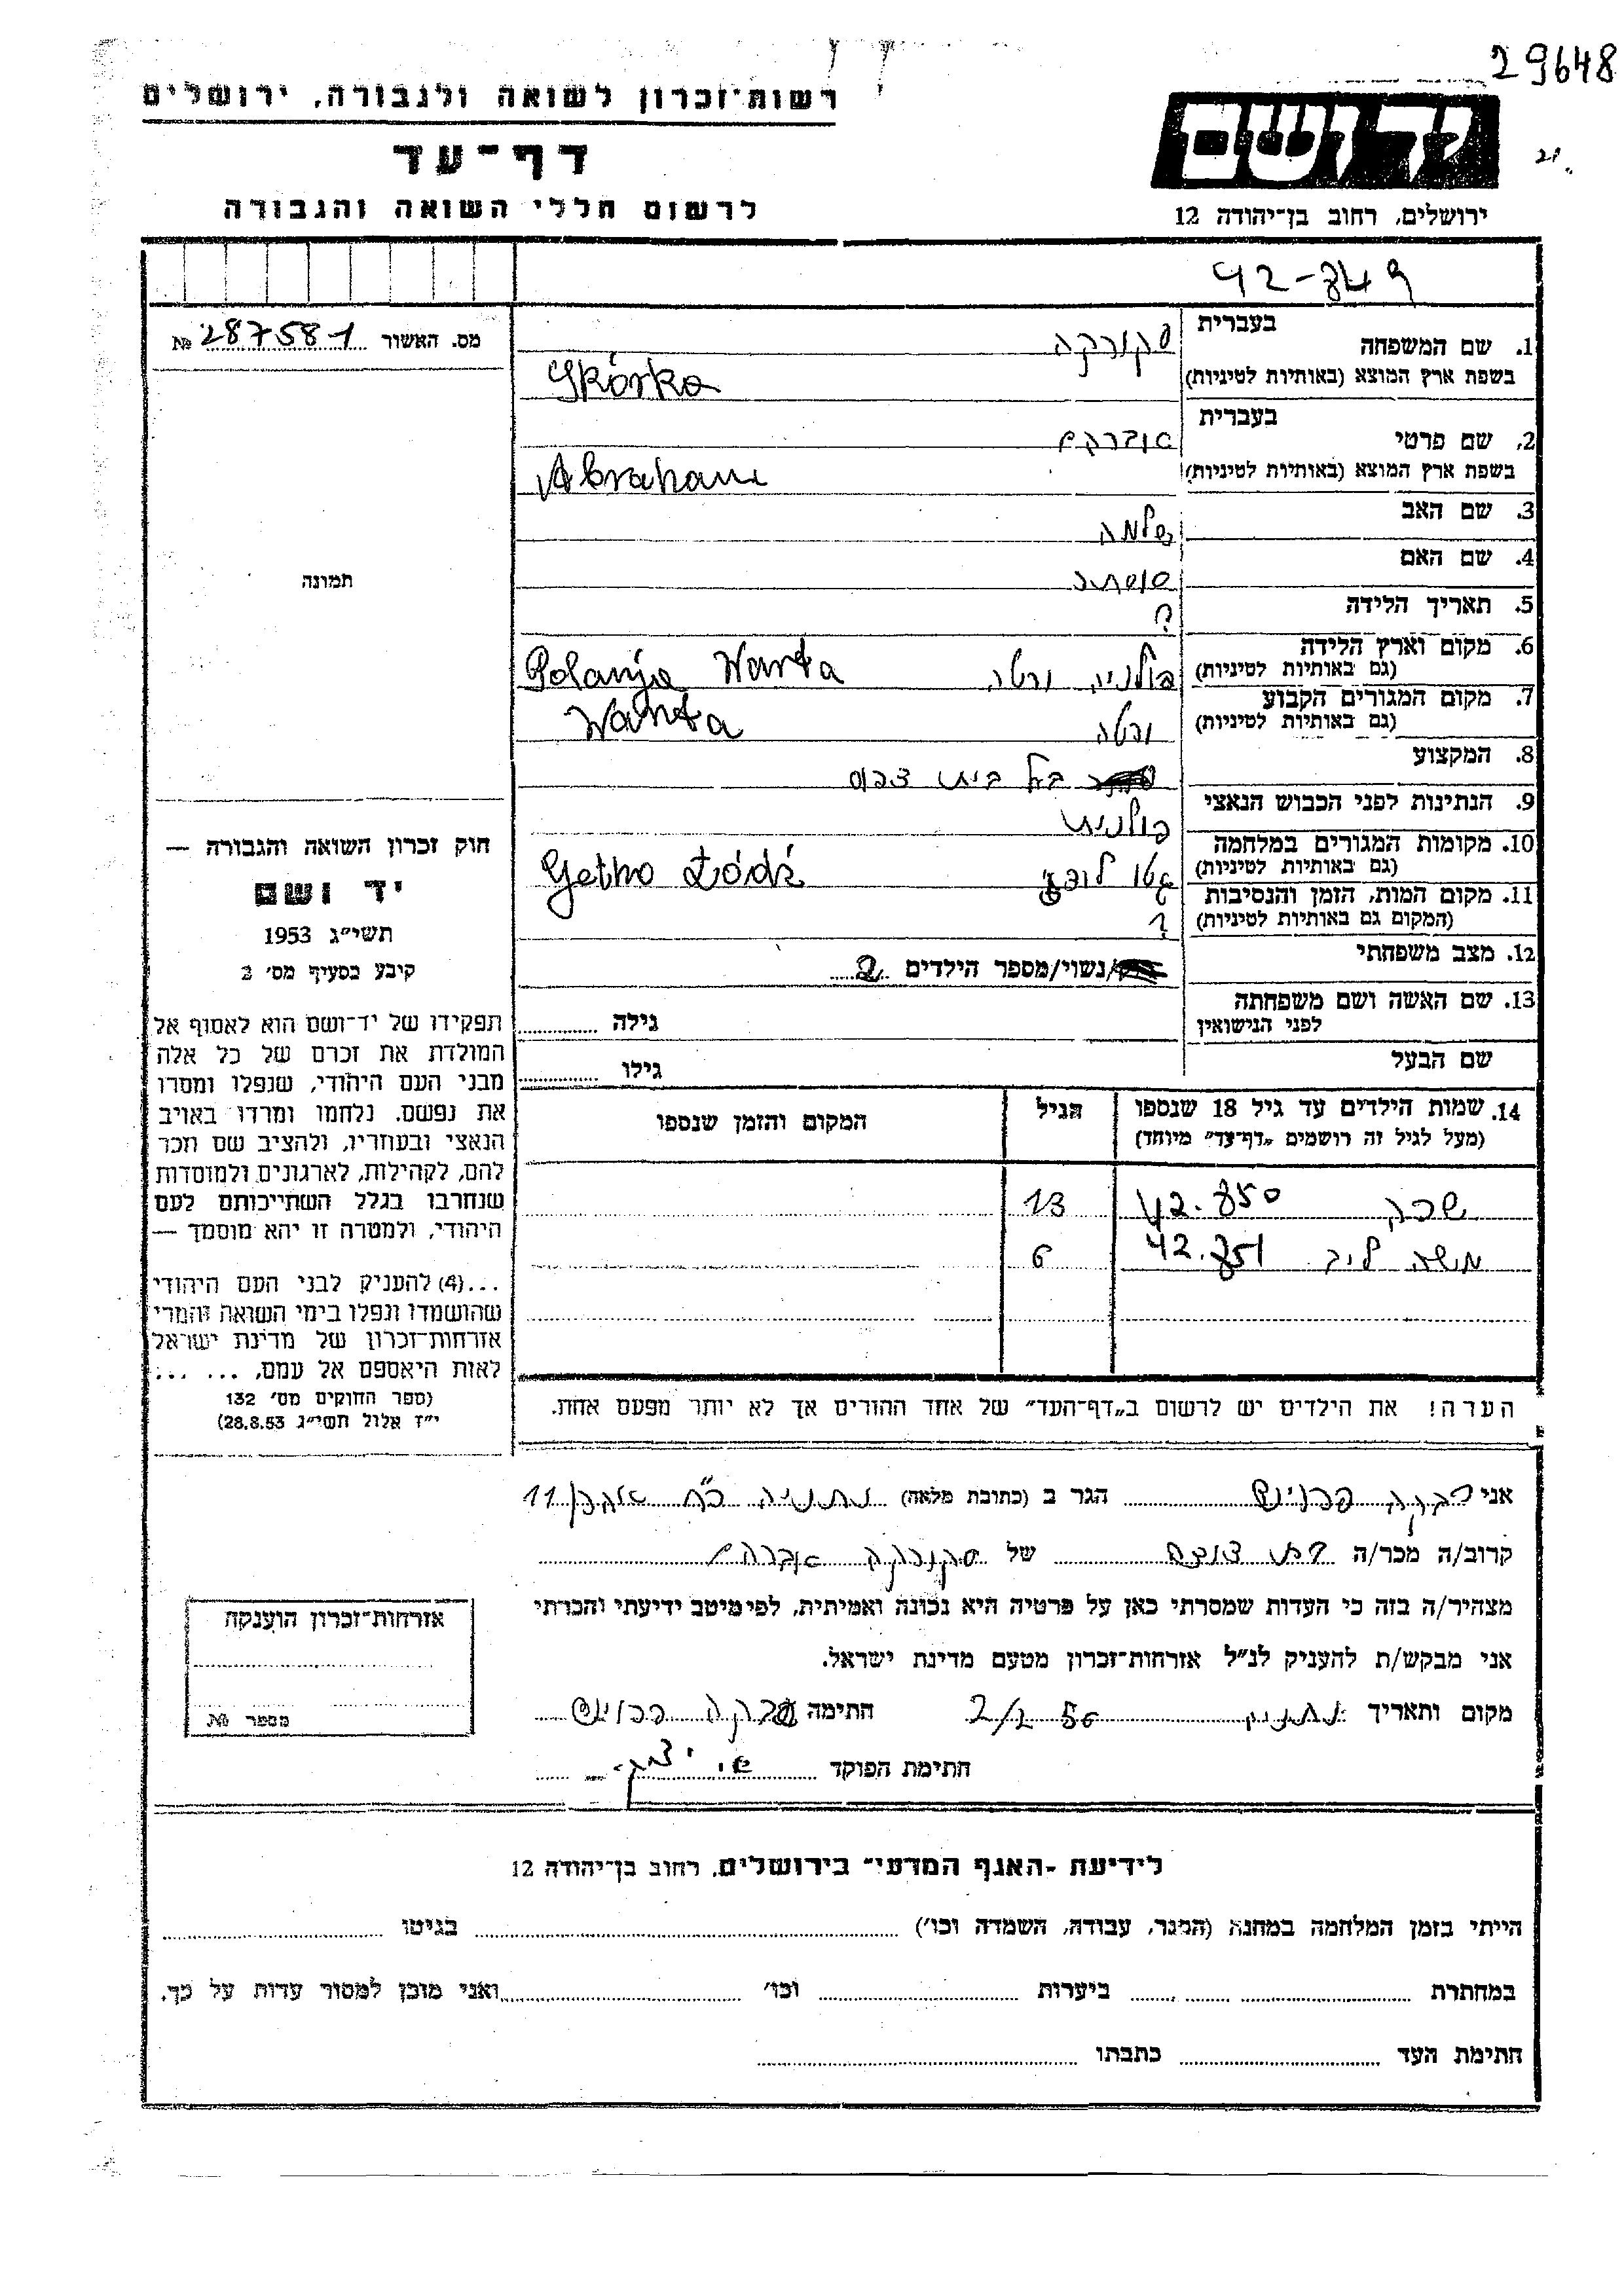 29648
רשות־זכרון לשואה ולגבורה, ירושלים
דף־עד
לרשום חללי השואה והגבורה
יד ושם
ירושלים, רחוב בן־יהודה 12
42-849
מס. האשור № 287581
תמונה
1. שם המשפחה בעברית סקורקה
בשפת ארץ המוצא (באותיות לטיניות) Skórka
2. שם פרטי בעברית אברהם
בשפת ארץ המוצא (באותיות לטיניות) Abraham
3. שם האב שלמה
4. שם האם
5. תאריך הלידה ?
6. מקום וארץ הלידה (גם באותיות לטיניות) פולניה ורטה Polanja Warta
7. מקום המגורים הקבוע (גם באותיות לטיניות) ורטה Warta
8. המקצוע בעל בית
9. הנתינות לפני הכבוש הנאצי פולנית
10. מקומות המגורים במלחמה (גם באותיות לטיניות) גטו לודז Getho Łódź
11. מקום המות, הזמן והנסיבות (המקום גם באותיות לטיניות) ?
12. מצב משפחתי /נשוי/מספר הילדים 2
13. שם האשה ושם משפחתה לפני הנישואין גילה
שם הבעל גילו
14. שמות הילדים עד גיל 18 שנספו (מעל לגיל זה רושמים „דף־עד” מיוחד) הגיל המקום והזמן שנספו
שרה 42.850 13
משה ליב 42.851 6
הערה! את הילדים יש לרשום ב„דף־העד” של אחד ההורים אך לא יותר מפעם אחת.
חוק זכרון השואה והגבורה —
יד ושם
תשי״ג 1953
קיבע בסעיף מס׳ 2
תפקידו של יד־ושם הוא לאסוף אל
המולדת את זכרם של כל אלה
מבני העם היהודי, שנפלו ומסרו
את נפשם, נלחמו ומרדו באויב
הנאצי ובעוזריו, ולהציב שם וזכר
להם, לקהילות, לארגונים ולמוסדות
שנחרבו בגלל השתייכותם לעם
היהודי, ולמטרה זו יהא מוסמך —
...(4) להעניק לבני העם היהודי
שהושמדו ונפלו בימי השואה והמרי
אזרחות־זכרון של מדינת ישראל
לאות היאספם אל עמם, ... ...
(ספר החוקים מס׳ 132
י״ז אלול תשי״ג 28.8.53)
אני רבקה הגר ב (כתובת מלאה) נתניה 11
קרוב/ה מכר/ה של סקורקה אברהם
מצהיר/ה בזה כי העדות שמסרתי כאן על פרטיה היא נכונה ואמיתית, לפי מיטב ידיעתי והכרתי
אני מבקש/ת להעניק לנ״ל אזרחות־זכרון מטעם מדינת ישראל.
מקום ותאריך נתניה 2/2 56 חתימה רבקה
חתימת הפוקד
אזרחות־זכרון הוענקה
מספר №
לידיעת „האגף המדעי” בירושלים, רחוב בן־יהודה 12
הייתי בזמן המלחמה במחנה (הסגר, עבודה, השמדה וכו׳) בגיטו
במחתרת ביערות וכו׳ ואני מוכן למסור עדות על כך.
חתימת העד כתבתו